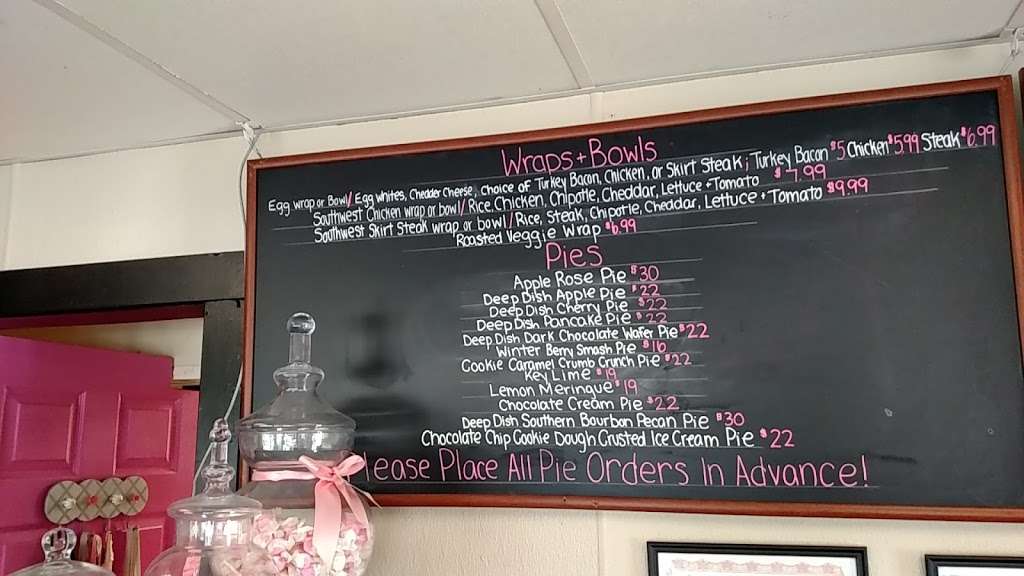 Wraps + Bowls
Egg wrap or Bowl / Egg whites, Chedder Cheese, Choice of Turkey Bacon, Chicken, or Skirt Steak; Turkey Bacon $5 Chicken $5.99 Steak $6.99
Southwest Chicken wrap or bowl / Rice, Chicken, Chipotle, Cheddar, Lettuce + Tomato $7.99
Southwest Skirt Steak wrap or bowl / Rice, Steak, Chipotle, Cheddar, Lettuce + Tomato $9.99
Roasted Veggie Wrap $6.99
Pies
Apple Rose Pie $30
Deep Dish Apple Pie $22
Deep Dish Cherry Pie $22
Deep Dish Pancake Pie $22
Deep Dish Dark Chocolate Wafer Pie $22
Winter Berry Smash Pie $16
Cookie Caramel Crumb Crunch Pie $22
Key Lime $19
Lemon Meringue $19
Chocolate Cream Pie $22
Deep Dish Southern Bourbon Pecan Pie $30
Chocolate Chip Cookie Dough Crusted Ice Cream Pie $22
lease Place All Pie Orders In Advance!